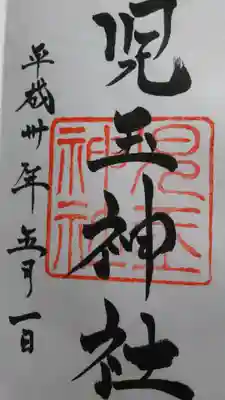 児玉神社
平成卅年五月一日
児玉
神社